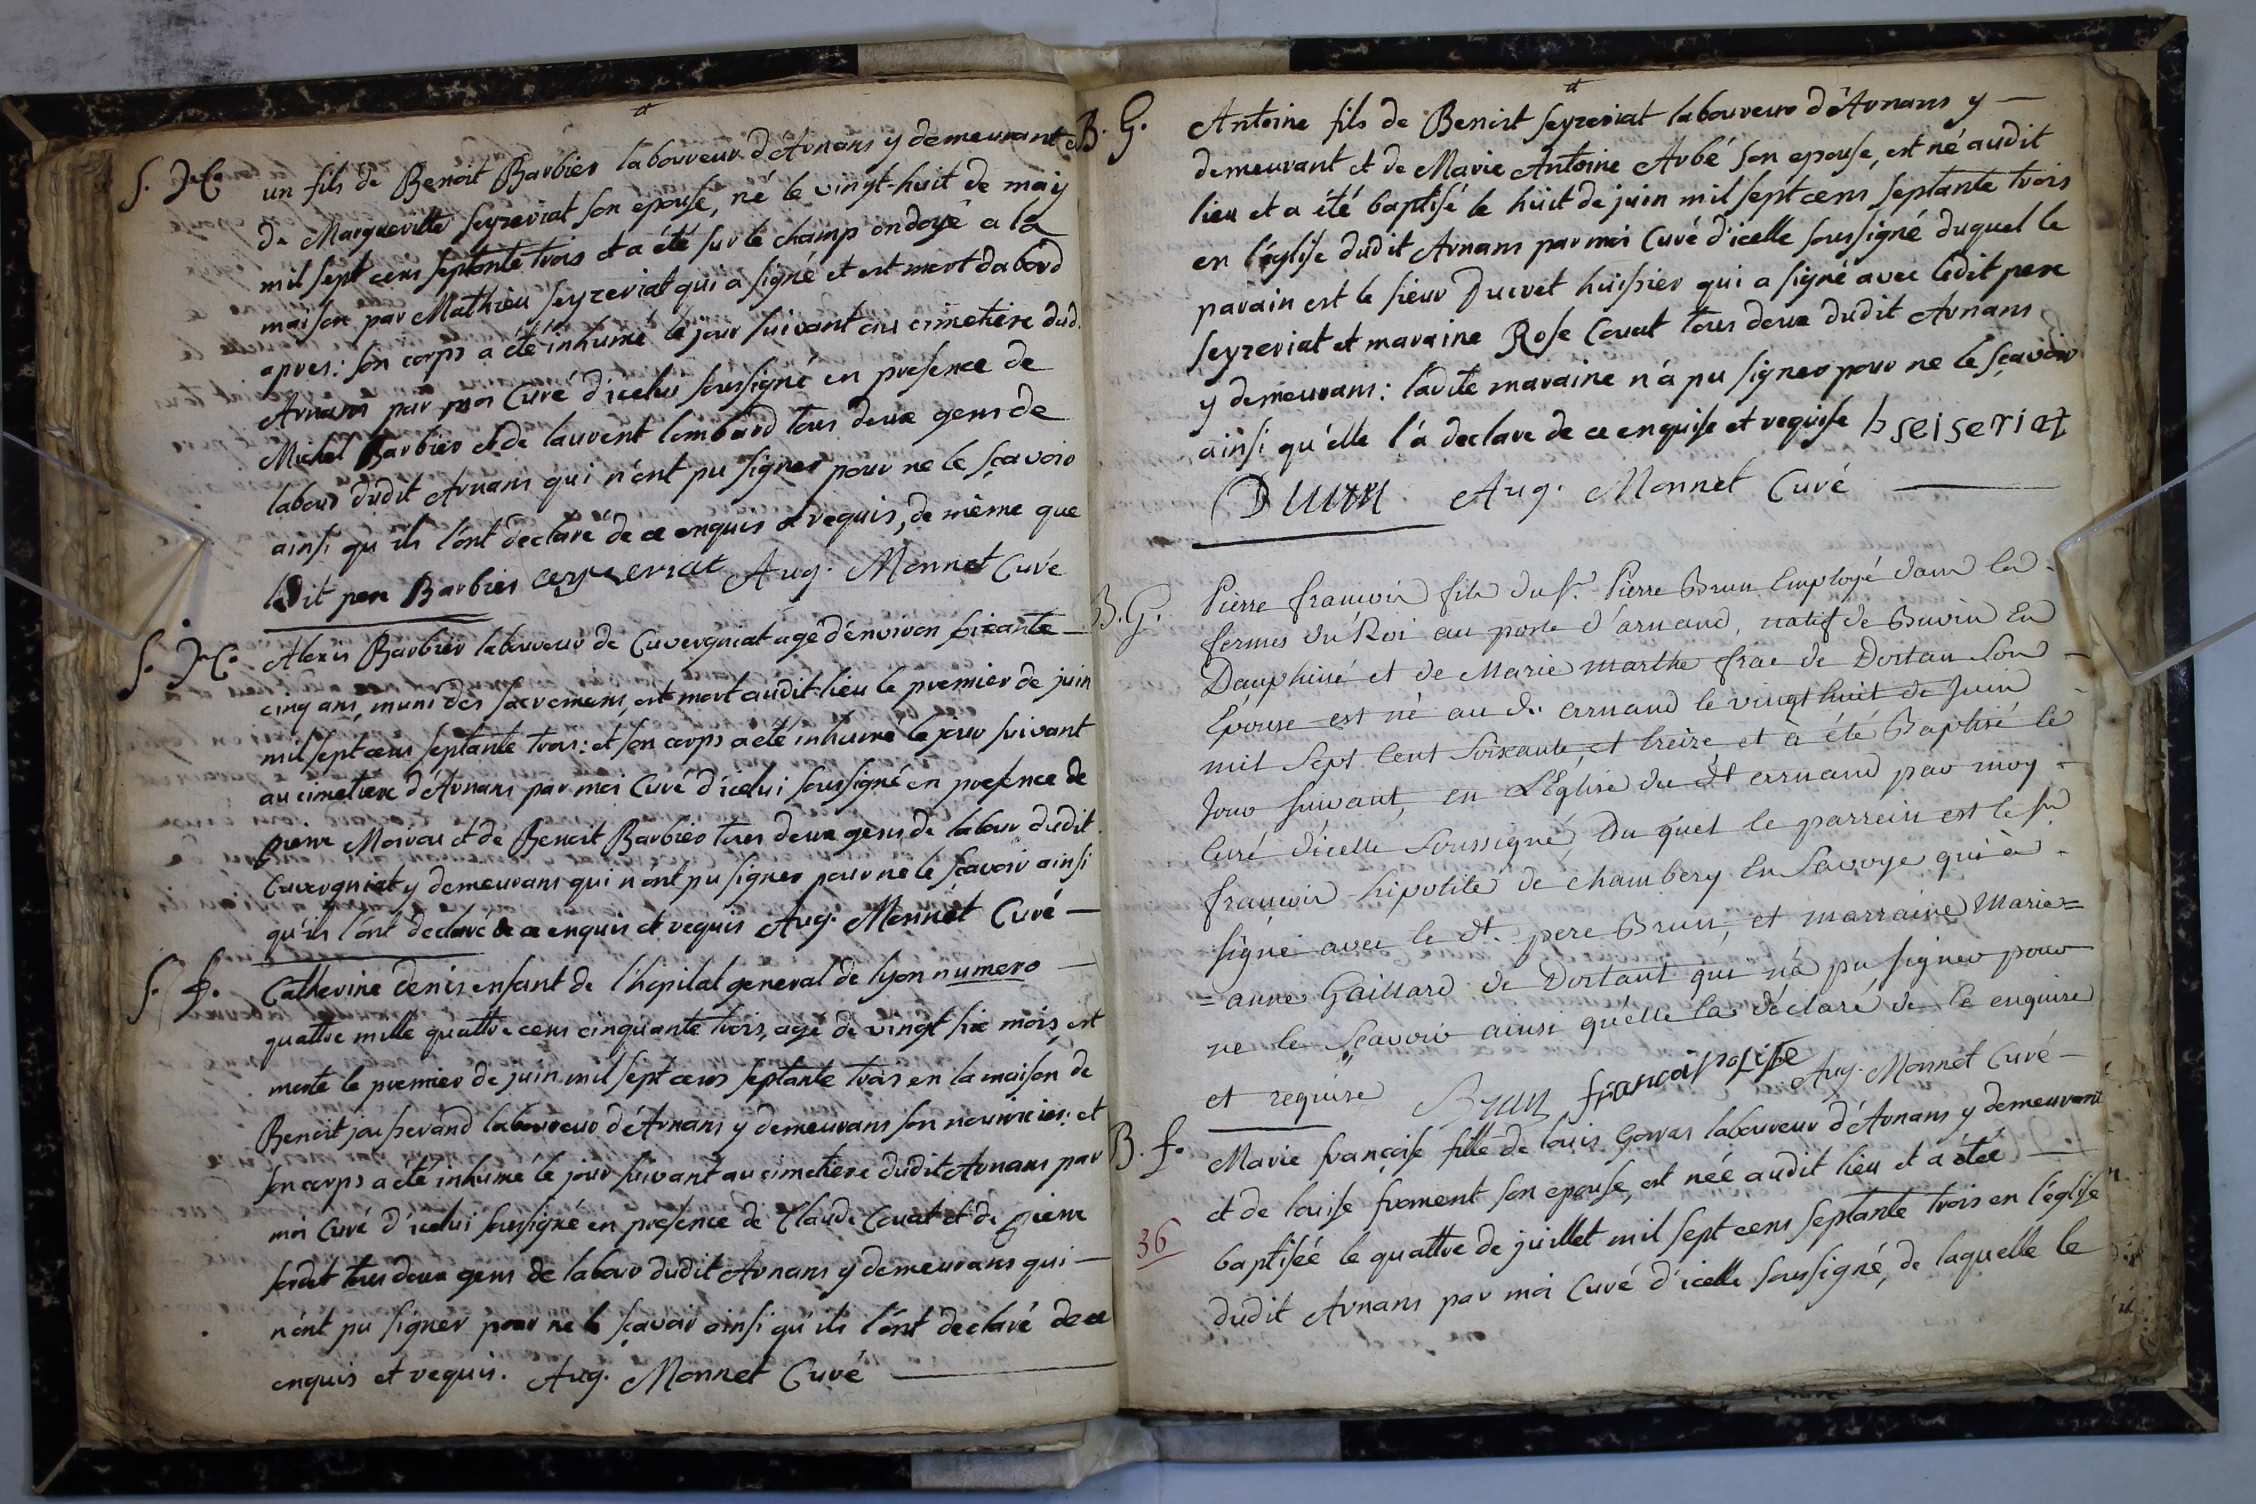 un fils de Benoit Barbier laboureur d'Arnans y demeurant et
de Margueritte Seyzeriat son epouse, né le vingt-huit de may
mil sept cens septante trois et a été sur le champ ondoyé a la
maison par Mathieu Seyzeriat qui a signé et est mort dabord
apres: son corps a été inhumé le jour suivant au cimetiere dud.
Arnans par moi Curé d'icelui soussigné en presence de
Michel Barbier et de laurent lombard tous deux gens de
labour dudit Arnans qui n'ont pu signer pour ne le sçavoir
ainsi qu'ils l'ont declaré de ce enquis et requis, de même que
ledit pere Barbier Aug. Monnet Curé
Alexis Barbier laboureur de Cuvergniat agé d'environ sixante
cinq ans, muni des sacremens, est mort audit-lieu le premier de juin
mil sept cens septante trois: et son corps a été inhumé le jour suivant
au cimetiere d'Arnans par moi Curé d'icelui soussigné en presence de
pierre et de Benoit Barbier tous deux gens de labour dudit
Cuvergniat y demeurans qui n'ont pu signer pour ne le sçavoir ainsi
qu'ils l'ont declaré de ce enquis et requis Aug. Monnet Curé
S. f. Catherine denis enfant de l'hopital general de lyon numero
quattre mille quattre cens cinquante trois, agé de vingt six mois, est
morte le premier de juin mil sept cens septante trois en la maison de
Benoit laboureur d'Arnans y demeurans son nourricier: et
son corps a été inhumé le jour suivant au cimetiere dudit Arnans par
moi Curé d'icelui soussigné en presence de Claude Couat et de pierre
tous deux gens de labour dudit Arnans y demeurans qui
n'ont pu signer pour ne le sçavoir ainsi qu'ils l'ont declaré de ce
enquis et requis. Aug. Monnet Curé
B. G. Antoine fils de Benoit Seyzeriat laboureur d'Arnans y
demeurant et de Marie Antoine Arbé son epouse, est né audit
lieu et a été baptisé le huit de juin mil sept cens septante trois
en l'église dudit Arnans par moi Curé d'icelle soussigné duquel le
parain est le sieur Ducret huissier qui a signé avec ledit pere
Seyzeriat et maraine Rose Couat tous deux dudit Arnans
y demeurans: ladite maraine n'a pu signer pour ne le sçavoir
ainsi qu'elle l'a declare de ce enquise et requise b seiseriat
Aug. Monnet Curé
B. G. Pierre françois fils du sr. Pierre Brun Employé dans les
fermes du Roi au poste d'arnand, natif de Buvin En
Dauphiné et de Marie marthe frae de Dortan Son
Epouse est né au dt. arnand le vingt huit de Juin
mil Sept Cent Soixante et treize et à été Baptisé le
Jour suivant, en L'Eglise du dt arnand par moy
Curé d'icelle Soussigné, Du quel le parrein est le sr
françois hipolite de chambery En Savoye qui à
Signé avec le dt. pere Brun, et marraine Marie=
=anne Gaillard de Dortant qui n'a pu signer pour
ne le Sçavoir ainsi qu'elle la déclaré de Ce enquise
et requise Brun Aug. Monnet Curé
B. f. Marie françoise fille de louis Gorras laboureur d'Arnans y demeurant
et de louise froment son epouse, est née audit lieu et a été
36 baptisée le quattre de juillet mil sept cens septante trois en l'église
dudit Arnans par moi Curé d'icelle soussigné, de laquelle le